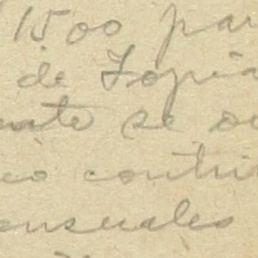 1500 par
de Topia
ente se o
co contri
ensuales